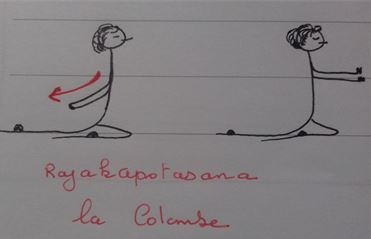 Rajakapotasana
la Colombe